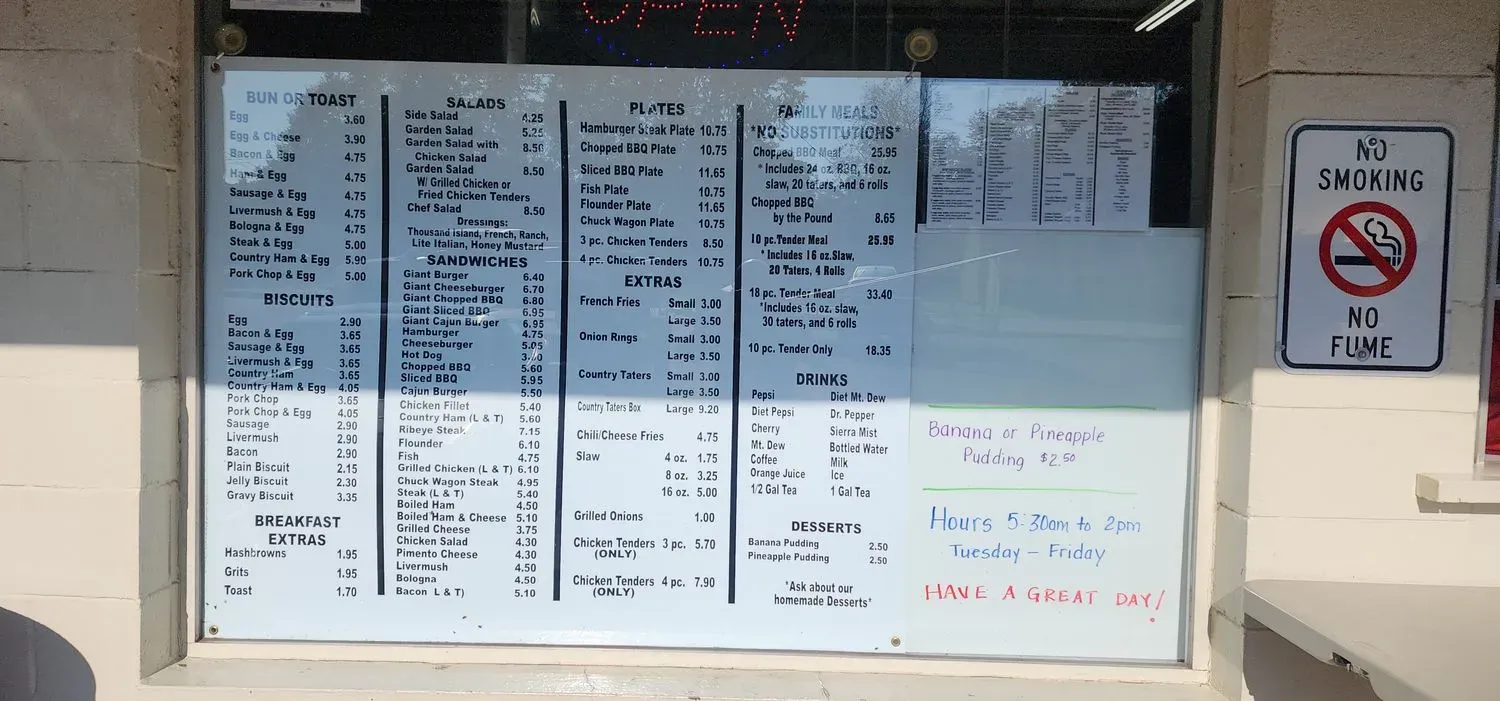 OPEN
BUN OR TOAST
Egg 3.60
Egg & Cheese 3.90
Bacon & Egg 4.75
Ham & Egg 4.75
Sausage & Egg 4.75
Livermush & Egg 4.75
Bologna & Egg 4.75
Steak & Egg 5.00
Country Ham & Egg 5.90
Pork Chop & Egg 5.00
BISCUITS
Egg 2.90
Bacon & Egg 3.65
Sausage & Egg 3.65
Livermush & Egg 3.65
Country Ham 3.65
Country Ham & Egg 4.05
Pork Chop 3.65
Pork Chop & Egg 4.05
Sausage 2.90
Livermush 2.90
Bacon 2.90
Plain Biscuit 2.15
Jelly Biscuit 2.30
Gravy Biscuit 3.35
BREAKFAST
EXTRAS
Hashbrowns 1.95
Grits 1.95
Toast 1.70
SALADS
Side Salad 4.25
Garden Salad 5.25
Garden Salad with 8.50
Chicken Salad
Garden Salad 8.50
W/ Grilled Chicken or
Fried Chicken Tenders
Chef Salad 8.50
Dressings:
Thousand Island, French, Ranch,
Lite Italian, Honey Mustard
SANDWICHES
Giant Burger 6.40
Giant Cheeseburger 6.70
Giant Chopped BBQ 6.80
Giant Sliced BBQ 6.95
Giant Cajun Burger 6.95
Hamburger 4.75
Cheeseburger 5.05
Hot Dog
Chopped BBQ 5.60
Sliced BBQ 5.95
Cajun Burger 5.50
Chicken Fillet 5.40
Country Ham (L & T) 5.60
Ribeye Steak 7.15
Flounder 6.10
Fish 4.75
Grilled Chicken (L & T) 6.10
Chuck Wagon Steak 4.95
Steak (L & T) 5.40
Boiled Ham 4.50
Boiled Ham & Cheese 5.10
Grilled Cheese 3.75
Chicken Salad 4.30
Pimento Cheese 4.30
Livermush 4.50
Bologna 4.50
Bacon L & T) 5.10
PLATES
Hamburger Steak Plate 10.75
Chopped BBQ Plate 10.75
Sliced BBQ Plate 11.65
Fish Plate 10.75
Flounder Plate 11.65
Chuck Wagon Plate 10.75
3 pc. Chicken Tenders 8.50
4 pc. Chicken Tenders 10.75
EXTRAS
French Fries Small 3.00
Large 3.50
Onion Rings Small 3.00
Large 3.50
Country Taters Small 3.00
Large 3.50
Country Taters Box Large 9.20
Chili/Cheese Fries 4.75
Slaw 4 oz. 1.75
8 oz. 3.25
16 oz. 5.00
Grilled Onions 1.00
Chicken Tenders 3 pc. 5.70
(ONLY)
Chicken Tenders 4 pc. 7.90
(ONLY)
FAMILY MEALS
*NO SUBSTITUTIONS*
Chopped BBQ Meal 25.95
*Includes 24 oz. BBQ, 16 oz.
slaw, 20 taters, and 6 rolls
Chopped BBQ
by the Pound 8.65
10 pc.Tender Meal 25.95
*Includes 16 oz.Slaw,
20 Taters, 4 Rolls
18 pc. Tender Meal 33.40
*Includes 16 oz. slaw,
30 taters, and 6 rolls
10 pc. Tender Only 18.35
DRINKS
Pepsi Diet Mt. Dew
Diet Pepsi Dr. Pepper
Cherry Sierra Mist
Mt. Dew Bottled Water
Coffee Milk
Orange Juice Ice
1/2 Gal Tea 1 Gal Tea
DESSERTS
Banana Pudding 2.50
Pineapple Pudding 2.50
*Ask about our
homemade Desserts*
Banana or Pineapple
Pudding $2.50
Hours 5:30am to 2pm
Tuesday - Friday
HAVE A GREAT DAY!
NO
SMOKING
NO
FUME